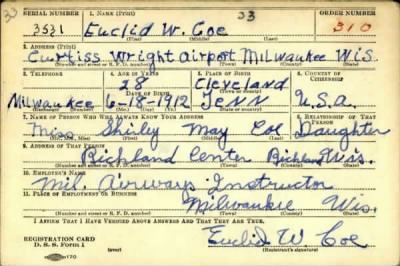 SERIAL NUMBER 1. NAME (Print) ORDER NUMBER
3531 Euclid W. Coe 33 310
(First) (Middle) (Last)
2. ADDRESS (Print)
Curtiss Wright Airport Milwaukee Wis.
(Number and street or R. F. D. number) (Town) (County) (State)
3. TELEPHONE 4. AGE IN YEARS 5. PLACE OF BIRTH 6. COUNTRY OF CITIZENSHIP
28 Cleveland
DATE OF BIRTH (Town or county)
Milwaukee 6-18-1912 Tenn U.S.A.
7. NAME OF PERSON WHO WILL ALWAYS KNOW YOUR ADDRESS 8. RELATIONSHIP OF THAT PERSON
Miss Shirley May Coe Daughter
9. ADDRESS OF THAT PERSON
Richland Center Richland Wis.
(Number and street or R. F. D. number) (Town) (County) (State)
10. EMPLOYER'S NAME
Mil. Airways Instructor
11. PLACE OF EMPLOYMENT OR BUSINESS
Milwaukee Wis.
(Number and street or R. F. D. number) (Town) (County) (State)
I AFFIRM THAT I HAVE VERIFIED ABOVE ANSWERS AND THAT THEY ARE TRUE.
REGISTRATION CARD
D. S. S. Form 1 (over) Euclid W. Coe
(Registrant's signature)